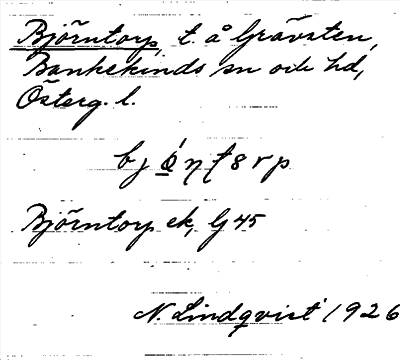 Björntorp, t. å Grävsten,
Bankekinds sn och hd,
Österg. l.
Björntorp ek, Gj 45
N. Lindqvist 1926